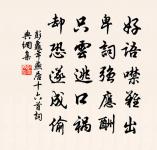 好語噤難出
卑詞強應酬
只雲逃口禍
卻恐遂成偷
彭龜年燕居十六首詞
典個集